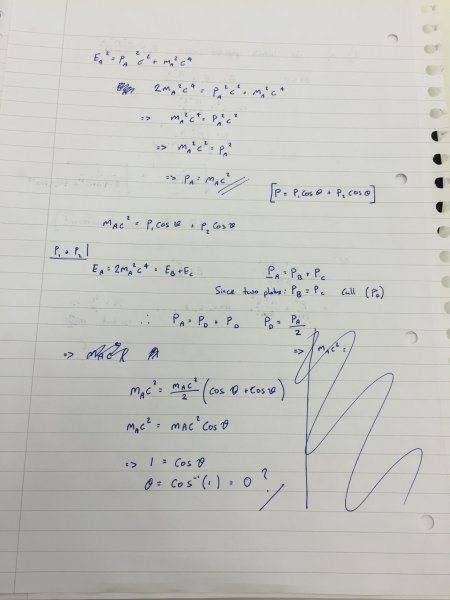 E_A² = P_A²c² + m_A²c⁴
2m_A²c⁴ = P_A²c² + m_A²c⁴
=> m_A²c⁴ = P_A²c²
=> m_A²c² = P_A²
=> P_A = m_Ac²
[P = P₁cosθ + P₂cosθ]
m_Ac² = P₁cosθ + P₂cosθ
P₁ + P₂
E_A = 2m_A²c⁴ = E_B + E_C
P_A = P_B + P_C
Since two photons: P_B = P_C Call (P_D)
∴ P_A = P_D + P_D P_D = P_A/2
=>
=> m_Ac² =
m_Ac² = m_Ac²/2 (cosθ + cosθ)
m_Ac² = mAc² cosθ
=> 1 = cosθ
θ = cos⁻¹(1) = 0 ?